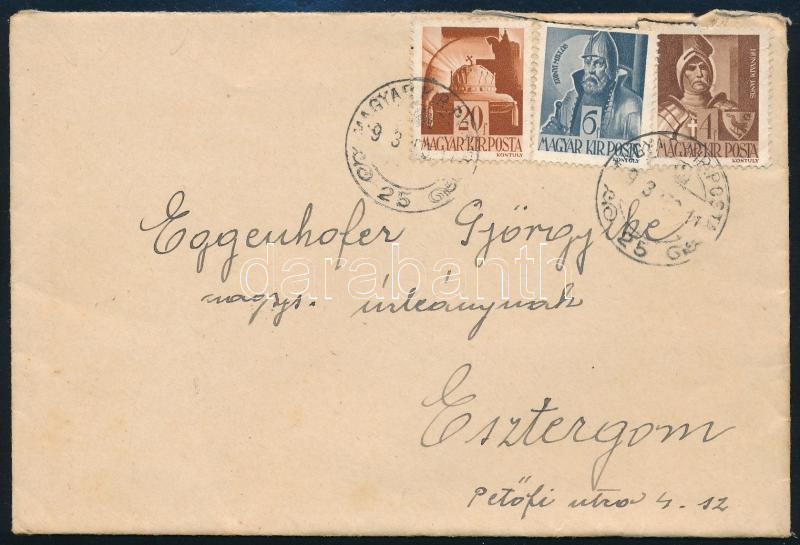 ZRINYI MIKLÓS
HUNYADI JÁNOS
20f
6f
4f
MAGYAR KIR. POSTA
MAGYAR KIR. POSTA
MAGYAR KIR. POSTA
KONTULY
KONTULY
KONTULY
MAGYAR KIR. POSTA
9 3
25
POSTA
9 3
11
25
Eggenhofer Györgyike
nagys. úrleánynak
darabanth
Esztergom
Petőfi utca 4. sz